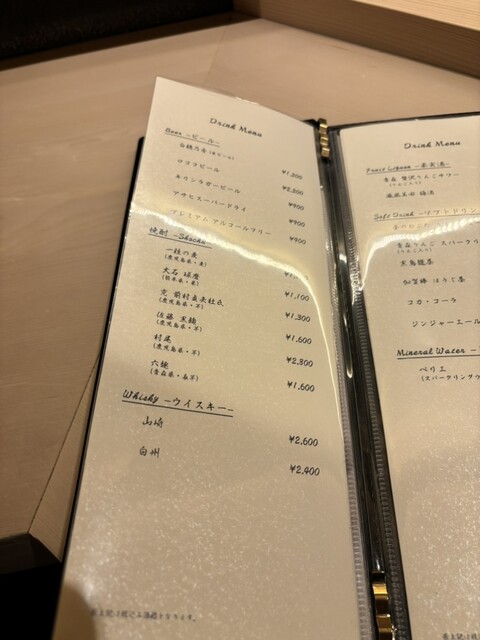 Drink Menu
Beer -ビール-
白穂乃香 (生ビール)
¥1,300
ロココビール
¥2,200
キリンラガービール
¥900
アサヒスーパードライ
¥900
プレミアム アルコールフリー
¥900
焼酎 -Shochu-
一粒の麦
(鹿児島県・麦)
大石 球磨
¥1,100
元 前村貞夫杜氏
(鹿児島県・芋)
¥1,300
佐藤 黒麹
(鹿児島県・芋)
¥1,600
村尾
(鹿児島県・芋)
¥2,300
六趣
¥1,600
Whisky -ウイスキー-
山崎
¥2,600
白州
¥2,400
Drink Menu
-果実酒-
青森
梅酒
Soft Drink -ソフトドリン
青森りんご スパークリ
黒烏龍茶
加賀棒 ほうじ茶
コカ・コーラ
ジンジャーエール
Mineral Water -
ペリエ
(スパークリングウ